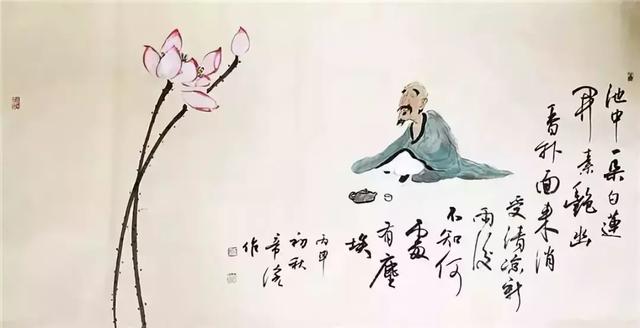 池中一朵白蓮
開素艷幽
香扑面来消
受清凉新
雨後
不知何
處
有塵
埃
丙申
初秋
作